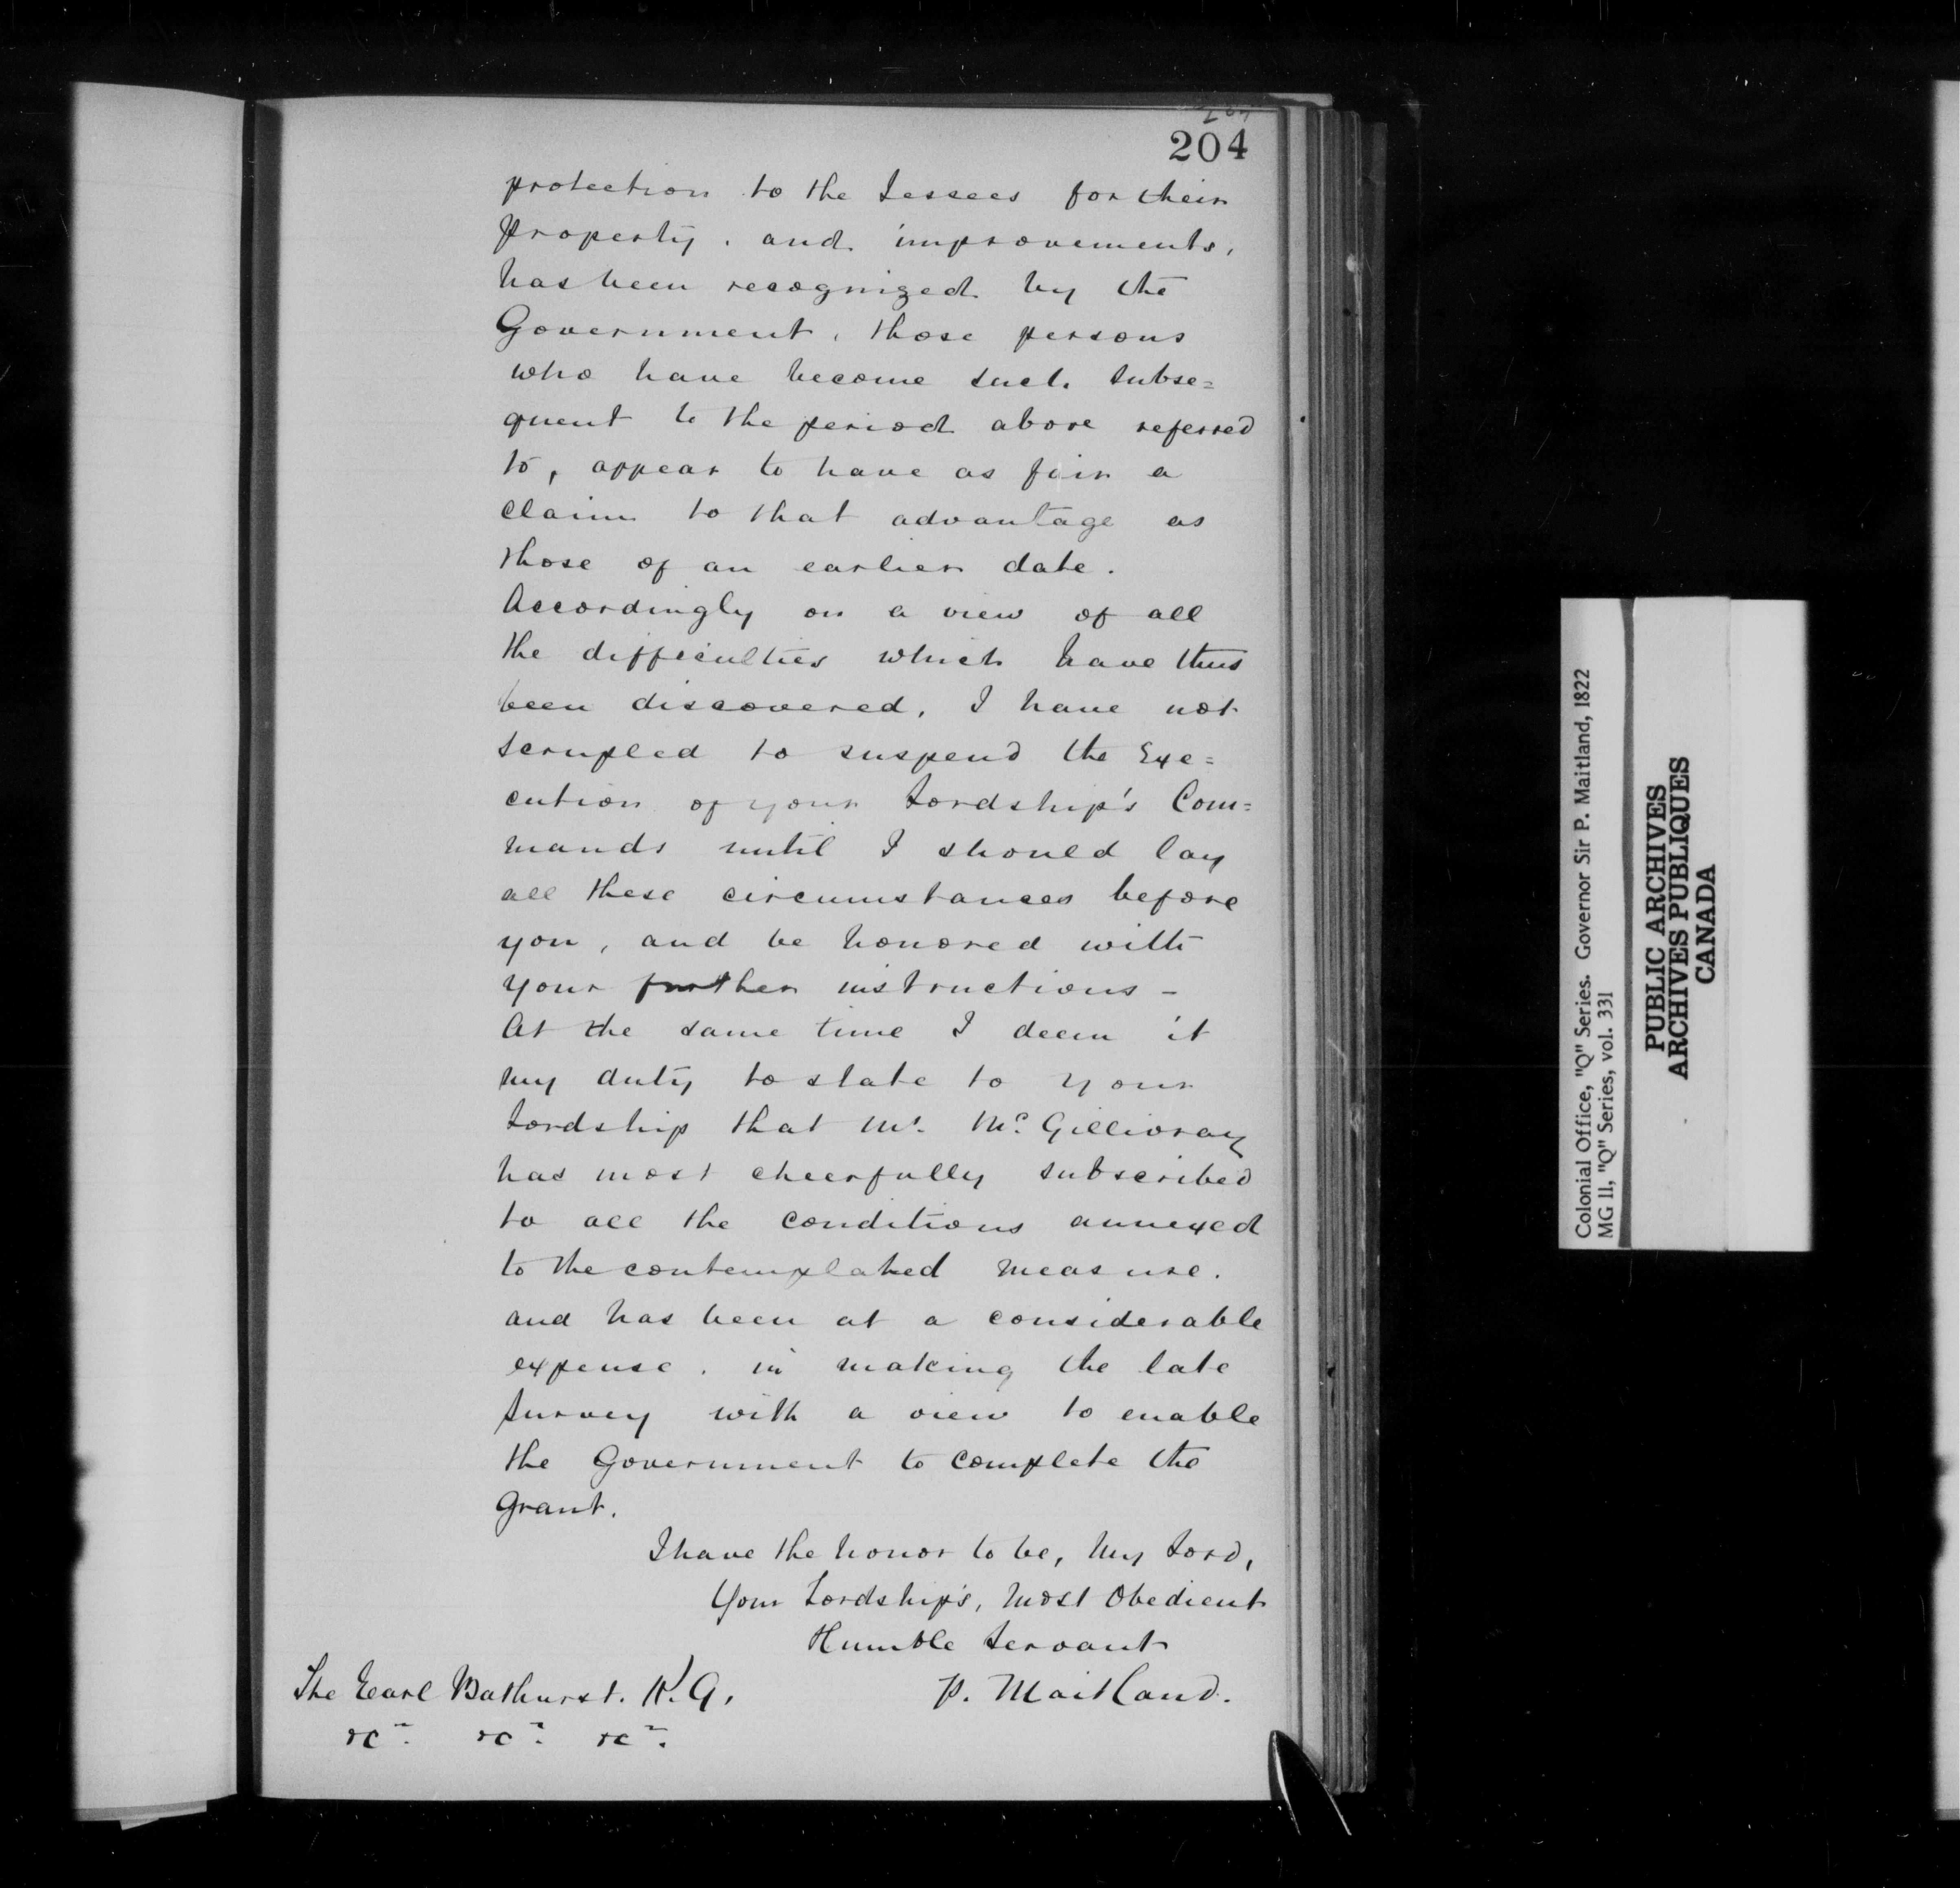 204
protection to the Lessees for their
property, and improvements,
has been recognized by the
Government, those persons
who have become such subse=
quent to the period above referred
to, appear to have as fair a
claim to that advantage as
those of an earlier date.
Accordingly on a view of all
the difficulties which have thus
been discovered, I have not
scrupled to suspend the Exe=
cution of your Lordship's Com=
mands until I should lay
all these circumstances before
you, and be honored with
your further instructions -
At the same time I deem it
my duty to state to your
Lordship that Mr. Mc. Gillivray
has most cheerfully subscribed
to all the conditions annexed
to the contemplated measure.
and has been at a considerable
expense, in making the late
Survey with a view to enable
the Government to complete the
Grant.
I have the honor to be, My Lord,
Your Lordship's, Most Obedient
Humble Servant
P. Maitland.
The Earl Bathurst. K.G.
&c. &c. &c.
Colonial Office, "Q" Series. Governor Sir P. Maitland, 1822
MG 11, "Q" Series, vol. 331
PUBLIC ARCHIVES
ARCHIVES PUBLIQUES
CANADA